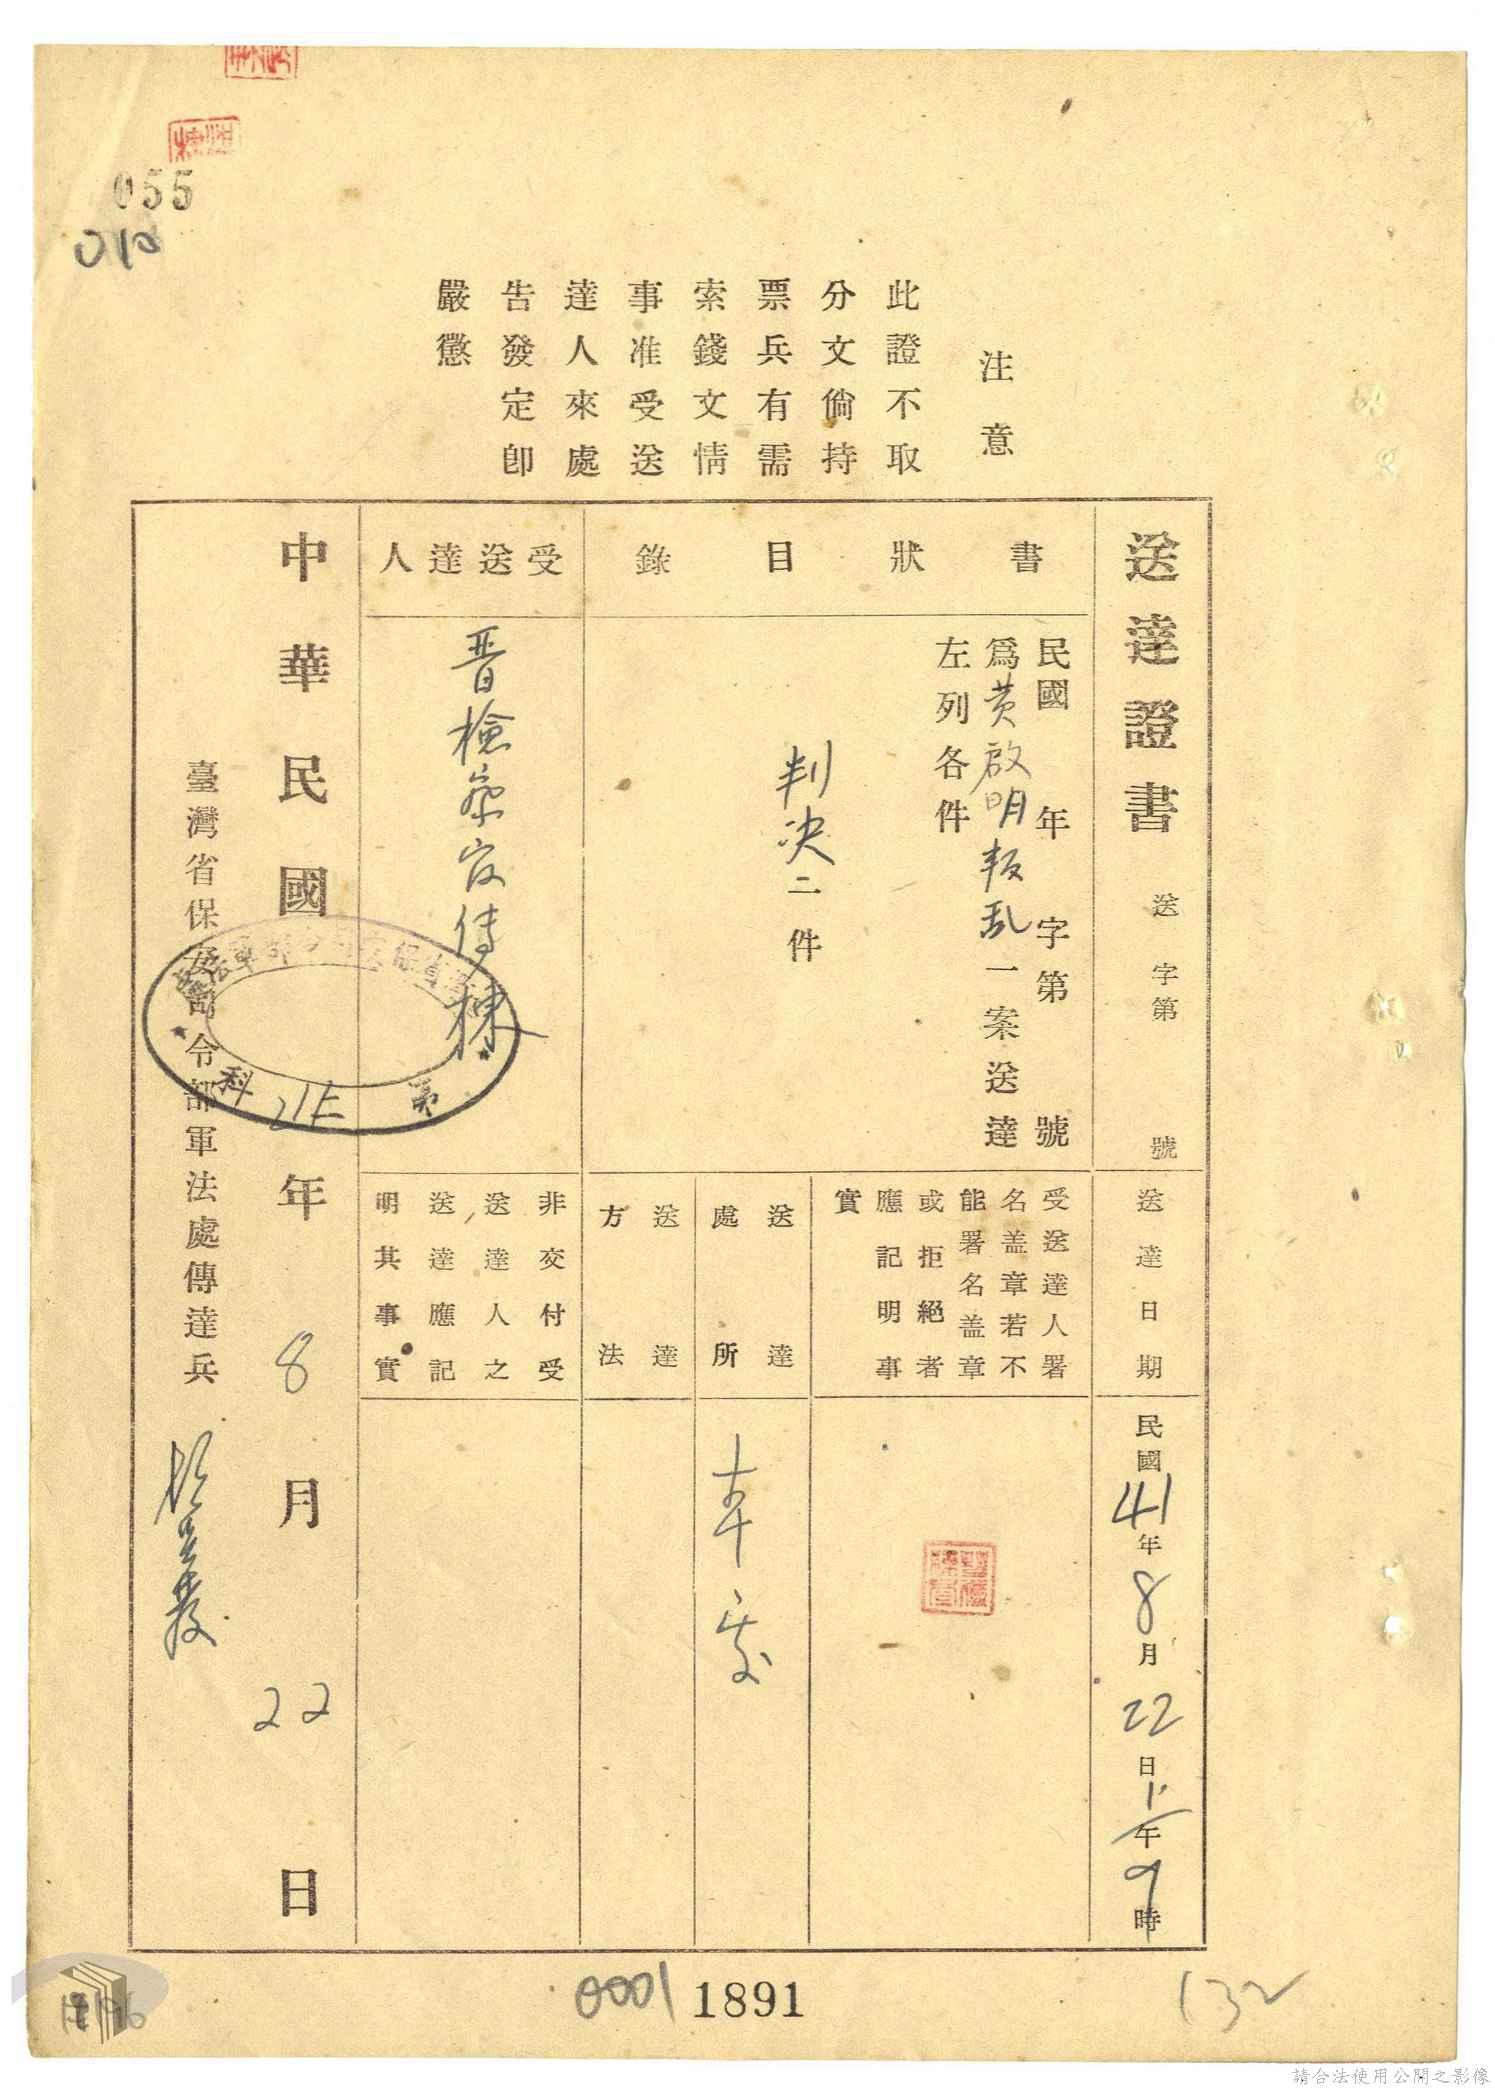 055
注意
此證不取
分文倘持
票兵有需
索錢文情
事准受送
達人來處
告發定卽
嚴懲
送達證書
送 字第 號
書狀目錄
民國 年 字第 號
爲黄啟明叛乱一案送達
左列各件
判决二件
受送達人
晋檢察官傳棟
送達日期
民國41年8月22日上午9時
受送達人署
名盖章若不
能署名盖章
或拒絕者
應記明事
實
送達
處所
本處
送達
方法
非交付受
送達人之
送達應記
明其事實
中華民國41年8月22日
科
臺灣省保安司令部軍法處傳達兵
0001
1891
132
請合法使用公開之影像